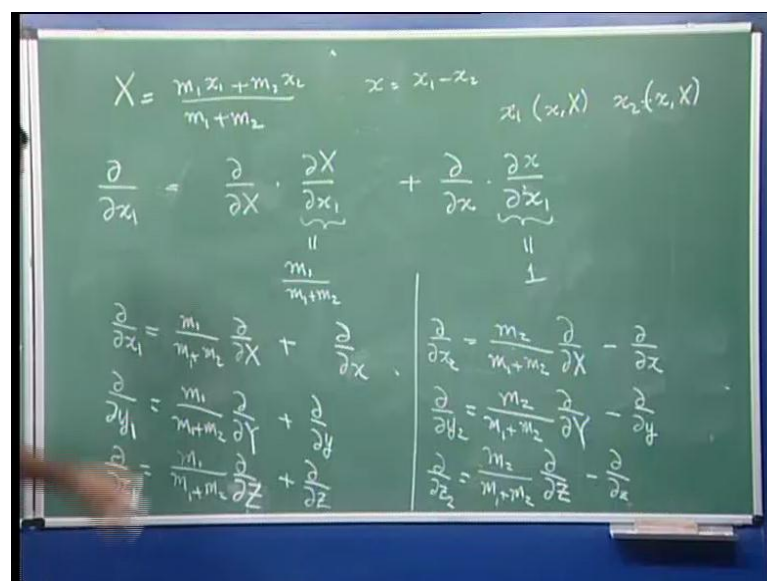 X = (m₁x₁ + m₂x₂)/(m₁ + m₂)    x = x₁ − x₂
x₁ (x, X)   x₂ (x, X)
∂/∂x₁ = ∂/∂X · ∂X/∂x₁ + ∂/∂x · ∂x/∂x₁
=    =
m₁/(m₁+m₂)    1
∂/∂x₁ = m₁/(m₁+m₂) ∂/∂X + ∂/∂x
∂/∂y₁ = m₁/(m₁+m₂) ∂/∂Y + ∂/∂y
∂/∂z₁ = m₁/(m₁+m₂) ∂/∂Z + ∂/∂z
∂/∂x₂ = m₂/(m₁+m₂) ∂/∂X − ∂/∂x
∂/∂y₂ = m₂/(m₁+m₂) ∂/∂Y − ∂/∂y
∂/∂z₂ = m₂/(m₁+m₂) ∂/∂Z − ∂/∂z